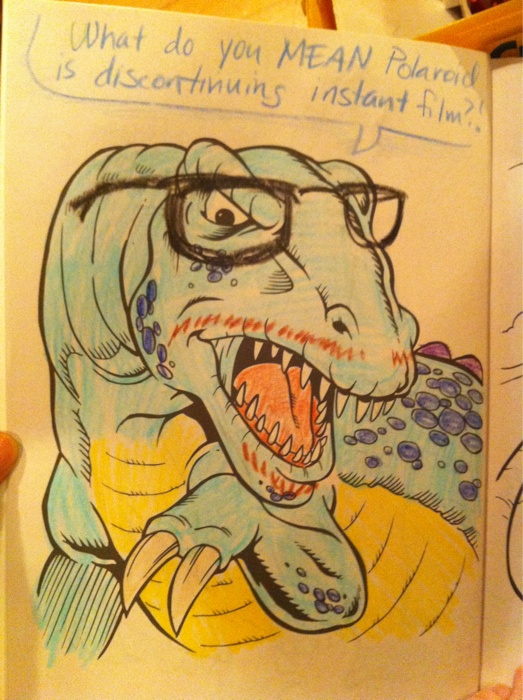 What do you MEAN Polaroid
is discontinuing instant film?!